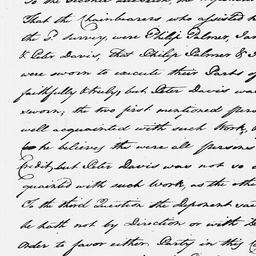 To the Second Question, the Deponent
That the Chainbearers who assisted in
the P. Survey, were Philip Palmer, Jam
& Peter Davis, That Philip Palmer & J
were sworn to execute their Parts of
faithfully & truly, but Peter Davis was
sworn; the two first mentioned perso
well acquainted with such Work, a
he believes the were all persons
Credit, but Peter Davis was not so a
quainted with such Work, as the othe
To the third Question the Deponent sai
he hath not by Direction or with
Order to favor either Party in this C